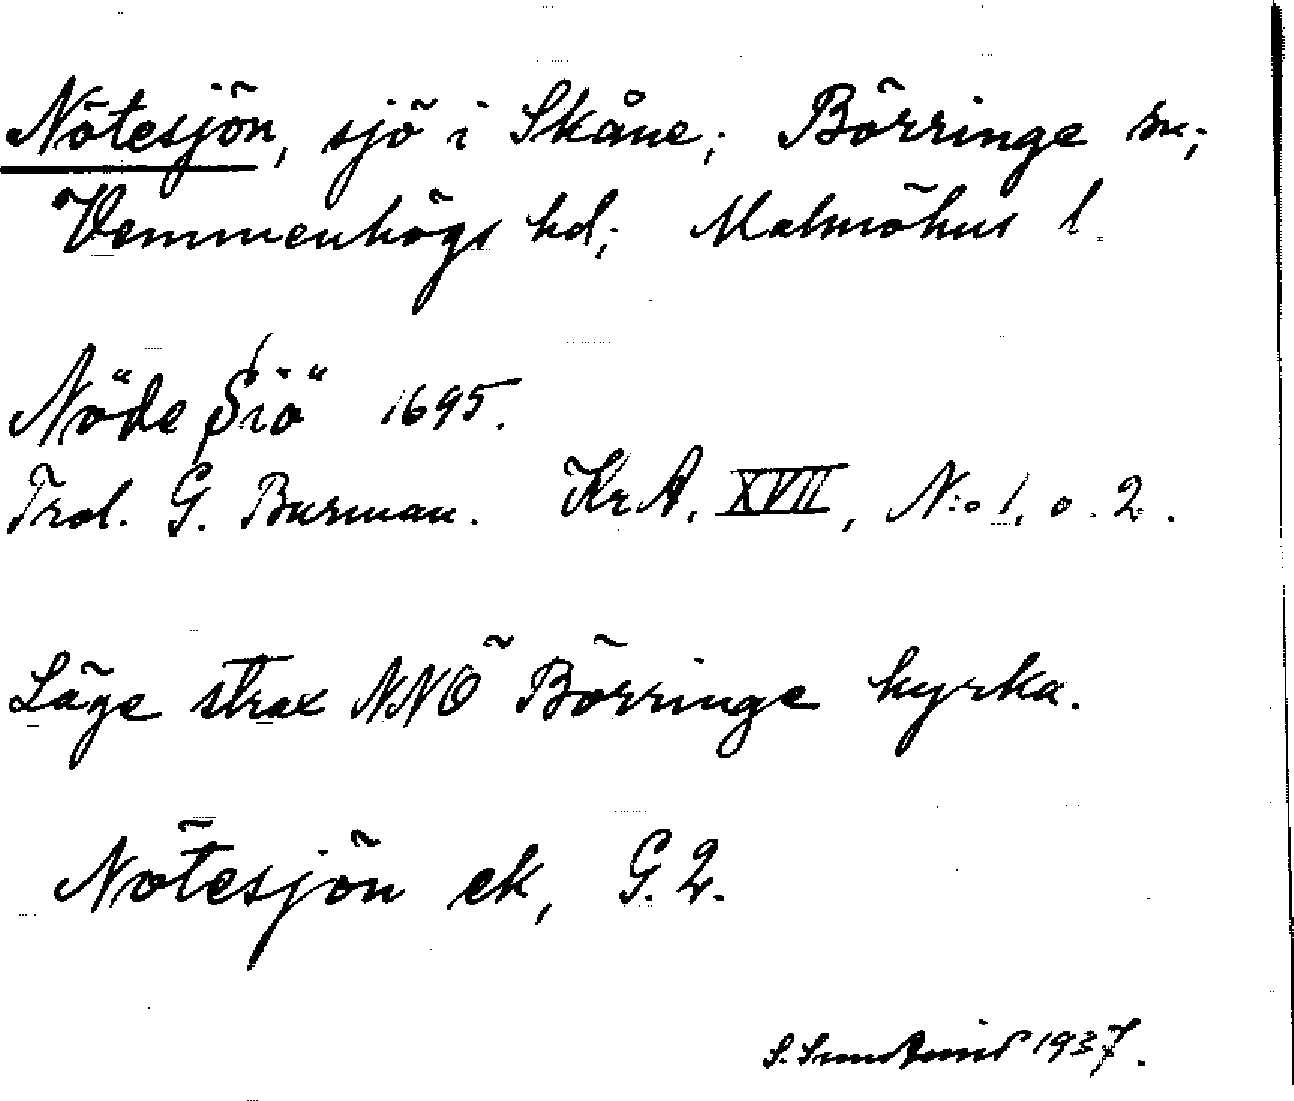 Nötesjön, sjö i Skåne; Börringe sn;
Vemmenhögs hd; Malmöhus l.
Nöde Siö 1695.
G. Burman. KrA. XVII, N:o 1, o. 2.
Läge strax NNÖ Börringe kyrka.
Nötesjön ek, G. 2.
1937.